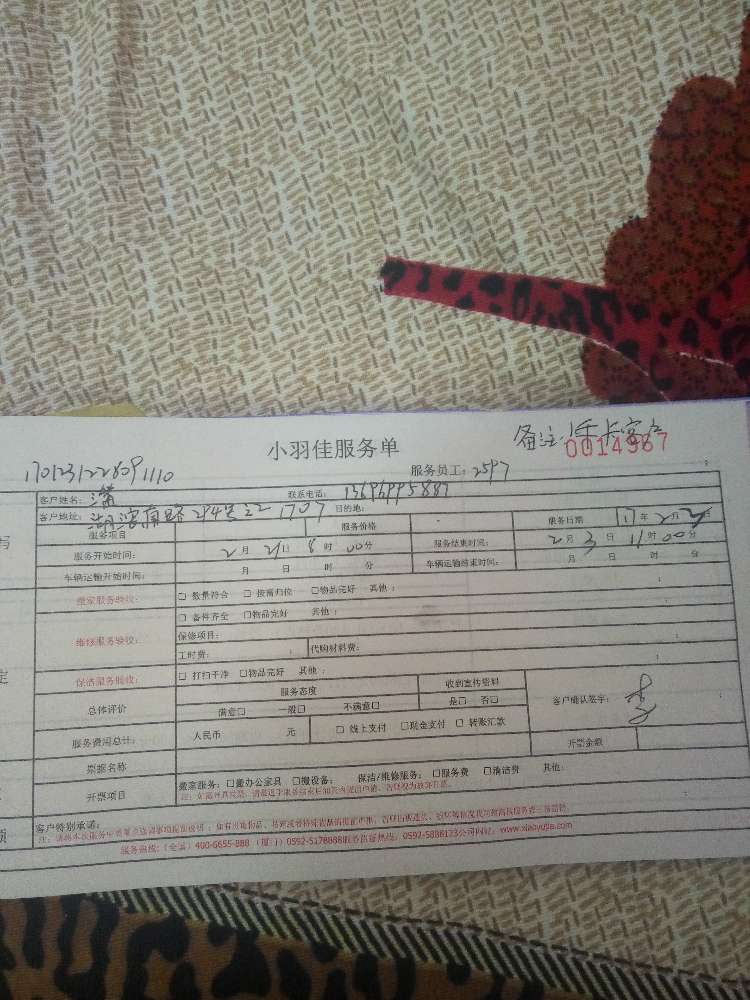 小羽佳服务单
备注:年卡客户
0014567
170123122809 1110
服务员工:2597
客户姓名:潇 联系电话:
客户地址:湖滨南路294号之二1707 目的地:
服务项目 服务价格 服务日期 17年2月2
服务开始时间: 2月2日8时00分 服务结束时间: 2月3日11时00分
车辆运输开始时间: 月 日 时 分 车辆运输结束时间: 月 日 时 分
搬家服务验收: □数量符合 □按需归位 □物品完好 其他:
维修服务验收: □备件齐全 □物品完好 其他:
保修项目:
工时费: 代购材料费:
保洁服务验收: □打扫干净 □物品完好 其他:
总体评价 服务态度 收到宣传资料 客户确认签字:
满意□ 一般□ 不满意□ 是□ 否□
服务费用总计: 人民币 元 □线上支付 □现金支付 □转账汇款
票据名称 开票金额
开票项目 搬家服务:□搬办公家具 □搬设备; 保洁/维修服务:□服务费 □清洁费 其他:
客户特别承诺:
服务热线:(全国)400-6655-888 (厦门)0592-5178888 0592-5886123公司网站:www.xiaoyujia.com